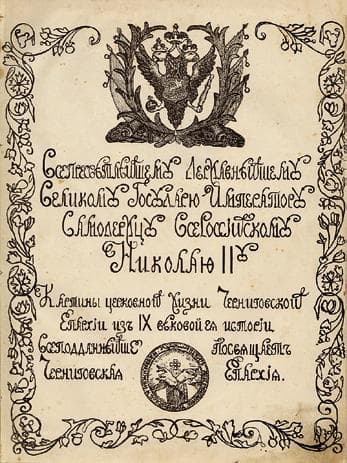 Всепресвѣтлѣйшему Державнѣйшему
Великому Государю Императору
Самодержцу Всероссійскому
Николаю IIу
Картины церковной жизни Черниговской
Епархіи изъ IX вѣковой ея исторіи
Всеподданнѣйше посвящаетъ
Черниговская Епархія.